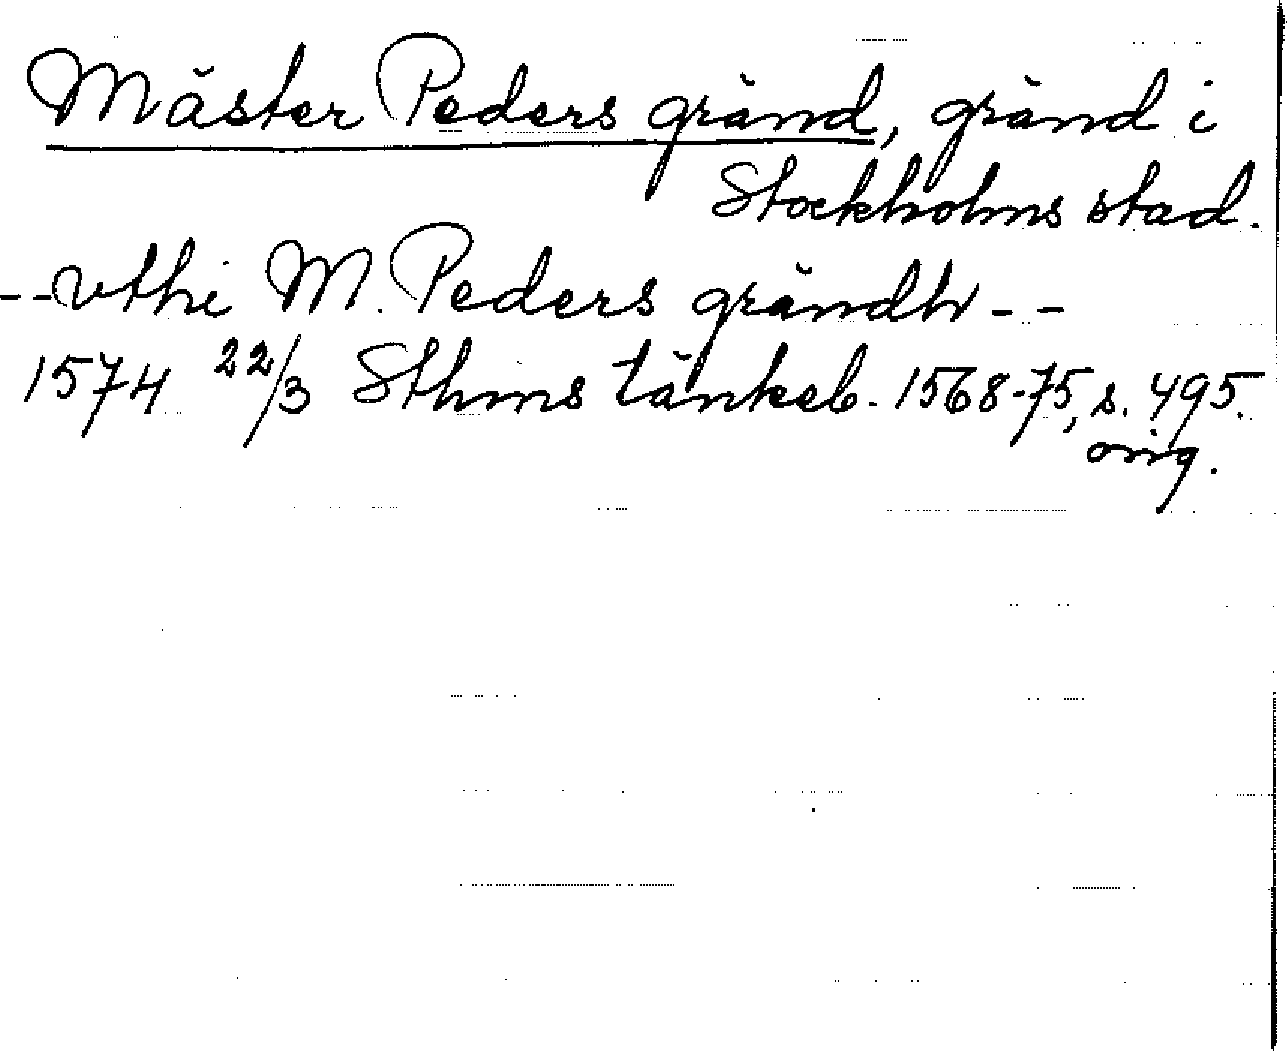 Mäster Peders gränd, gränd i
Stockholms stad.
- - vthi M. Peders grändh - -
1574 22/3 Sthms tänkeb. 1568-75, s. 495.
orig.